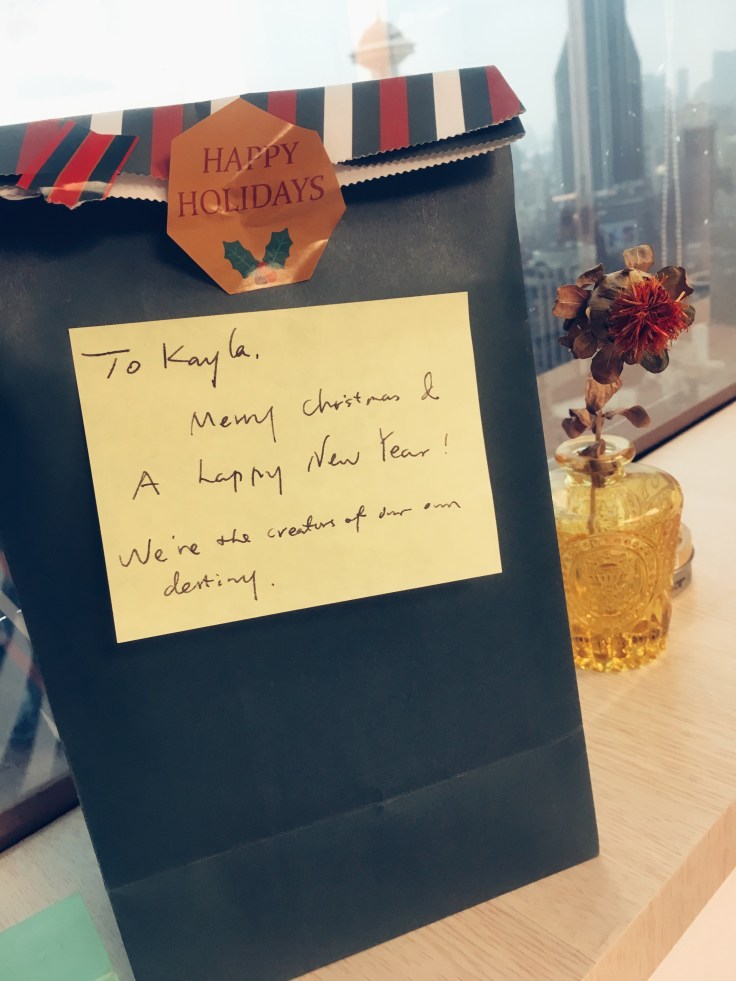 HAPPY
HOLIDAYS
To Kayla,
Merry Christmas &
A happy New Year!
We're the creators of our own
destiny.